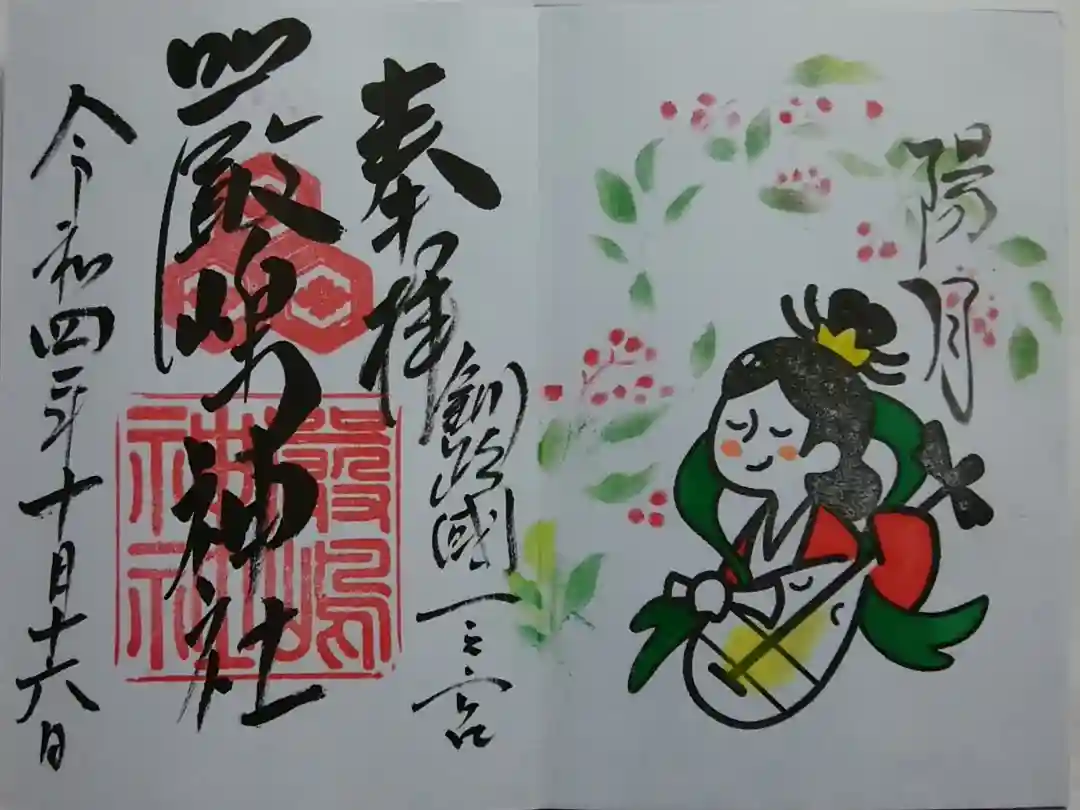 陽月
奉拝
釧路國一之宮
厳嶋神社
厳嶋
神社
令和四年十月十六日